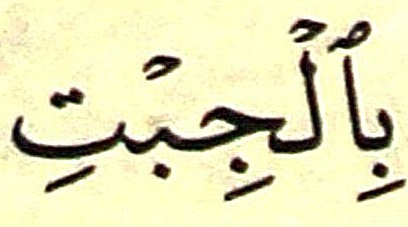 بِٱلْجِبْتِ